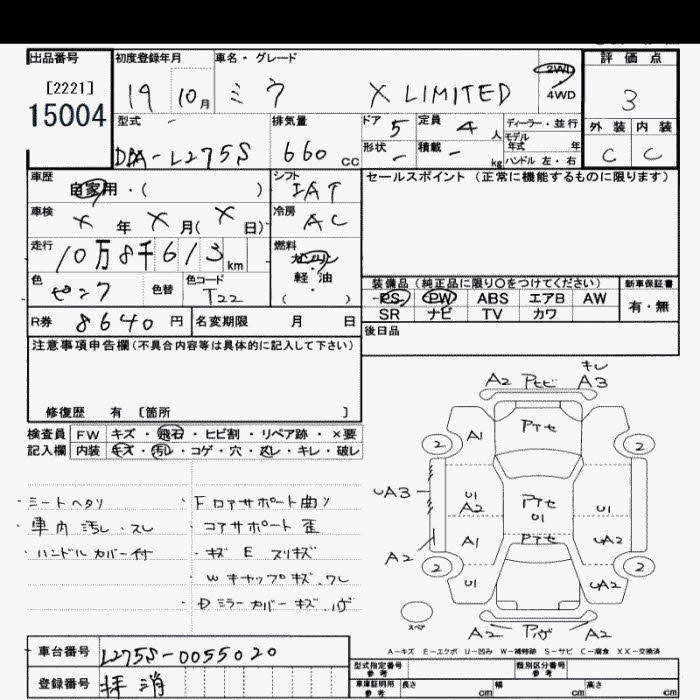 出品番号
[2221]
15004
初度登録年月
19 10月
車名・グレード
ミラ X LIMITED
2WD
4WD
評価点
3
外装 内装
C C
型式
DBA-L275S
排気量
660 cc
ドア 5
定員 4 人
形状 -
積載 - kg
ディーラー・並行
モデル
年式 年
ハンドル 左・右
車歴
自家用・( )
シフト
IAT
車検
X 年 X 月( X 日)
冷房
AC
走行
10万8千613km
燃料
ガソリン
軽・油
( )
色
ピンク
色替
色コード
T22
R券 8640 円
名変期限 月 日
セールスポイント(正常に機能するものに限ります)
装備品(純正品に限り○をつけてください)
新車保証書
PS PW ABS エアB AW
SR ナビ TV カワ
有・無
後日品
注意事項申告欄(不具合内容等は具体的に記入して下さい)
修復歴 有 〔箇所 〕
検査員
記入欄
FW キズ・飛石・ヒビ割・リペア跡・×要
内装 キズ・汚レ・コゲ・穴・スレ・キレ・破レ
・シートヘタリ
・車内汚レ・スレ
・ハンドルカバー付
・Fロアサポート曲リ
・コアサポート歪
・キズ E スリキズ
W キャップキズ、ワレ
ミラーカバーキズ・ハゲ
キレ
A2 Pトビ A3
A1 Pアセ
2 2
UA3
U1
A2
Pアセ
U1
U1
A2
A1 Pアセ UA2
2 2
U1 UA2
スペア
A2 Pハゲ A2
A-キズ E-エクボ U-凹み W-補修跡 S-サビ C-腐食 XX-交換済
車台番号 L275S-0055020
登録番号 抹消
型式指定番号
参考
類別区分番号
参考
車庫証明用
参考
長さ cm
幅 cm
高さ cm